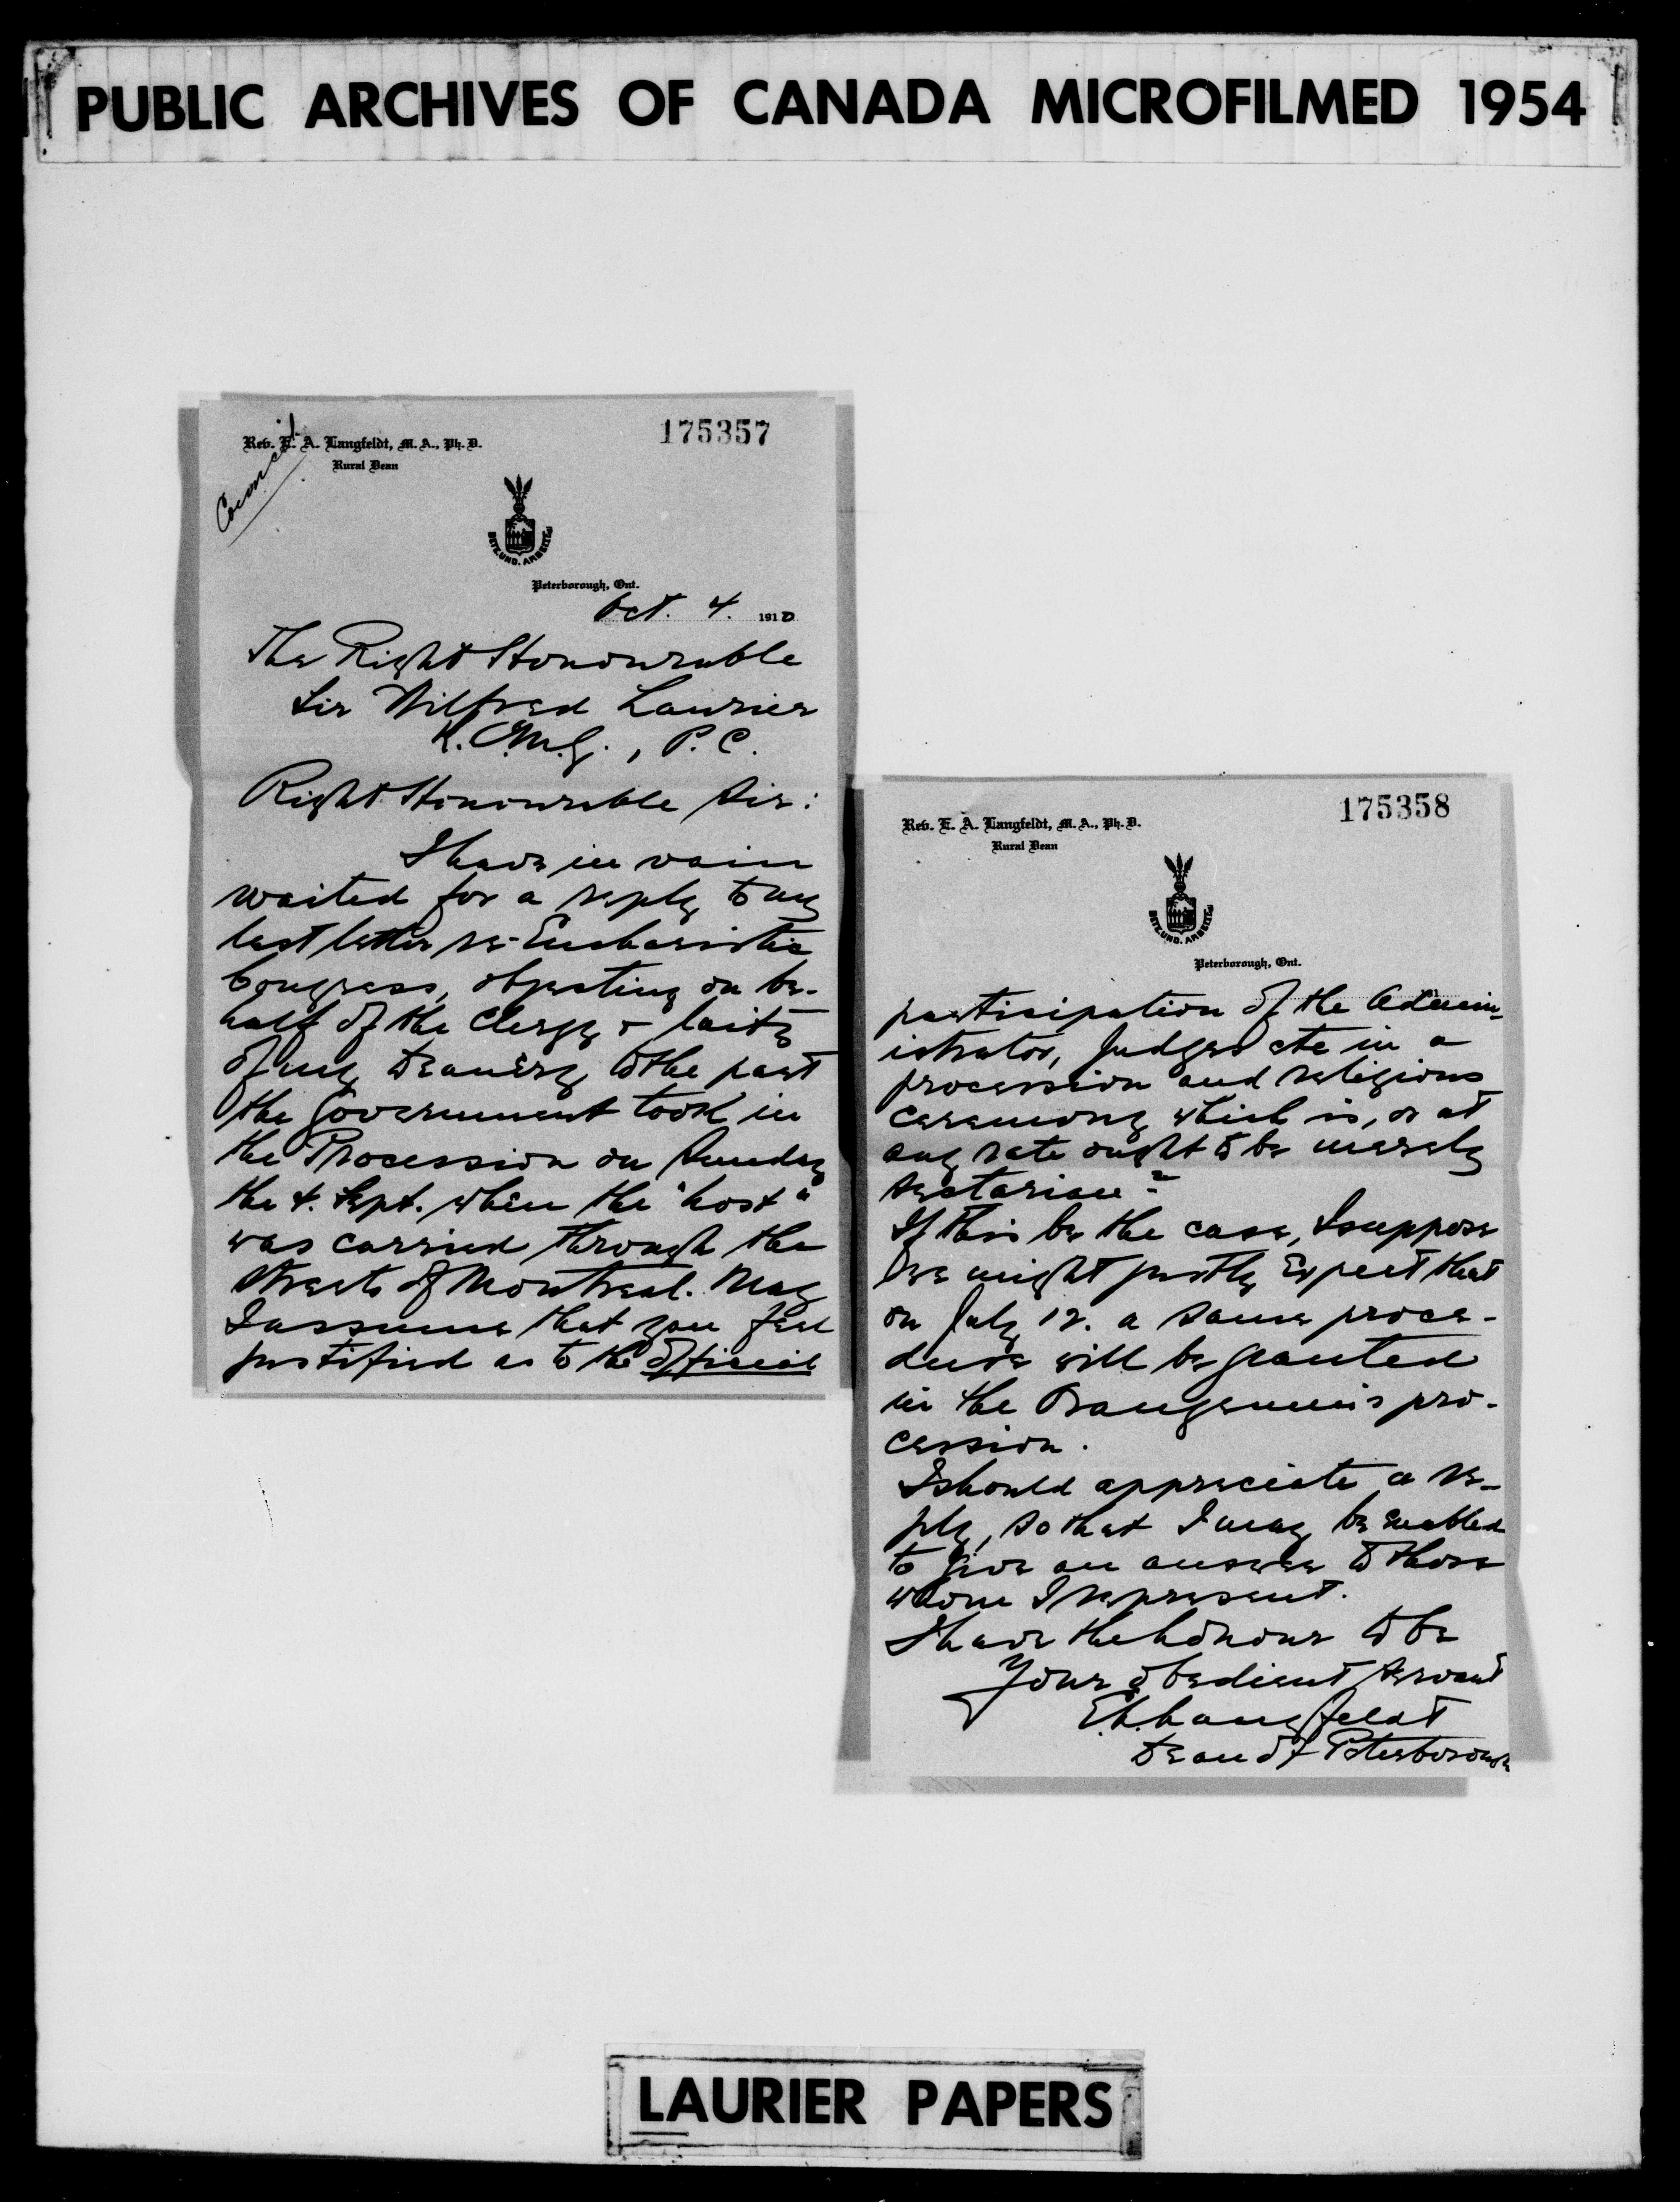 PUBLIC ARCHIVES OF CANADA MICROFILMED 1954
175357
Rev. E. A. Langfeldt, M. A., Ph. D.
Rural Dean
Council
BETE. UND. ARBEITE
Peterborough, Ont.
Oct. 4. 1910
The Right Honourable
Sir Wilfred Laurier
K.C.M.G., P.C.
Right Honourable Sir:
I have in vain
waited for a reply to my
last letter re-Eucharistic
Congress, objecting on be-
half of the Clergy & laity
of my Deanery to the part
the Government took in
the Procession on Sunday
the 4. Sept. when the "host"
was carried through the
Streets of Montreal. May
I assume that you feel
justified as to the official
175358
Rev. E. A. Langfeldt, M. A., Ph. D.
Rural Dean
BETE. UND. ARBEITE
Peterborough, Ont.
participation of the Admin-
istrator, Judges etc in a
procession and religious
ceremony which is, or at
any rate ought to be merely
sectarian?
If this be the case, I suppose
we might justly expect that
on July 12. a same proce-
dure will be granted
in the Orangemen's pro-
cession.
I should appreciate a re-
ply, so that I may be enabled
to give an answer to those
whom I represent.
I have the honour to be
Your obedient servant
E.A. Langfeldt
Dean of Peterborough
LAURIER PAPERS